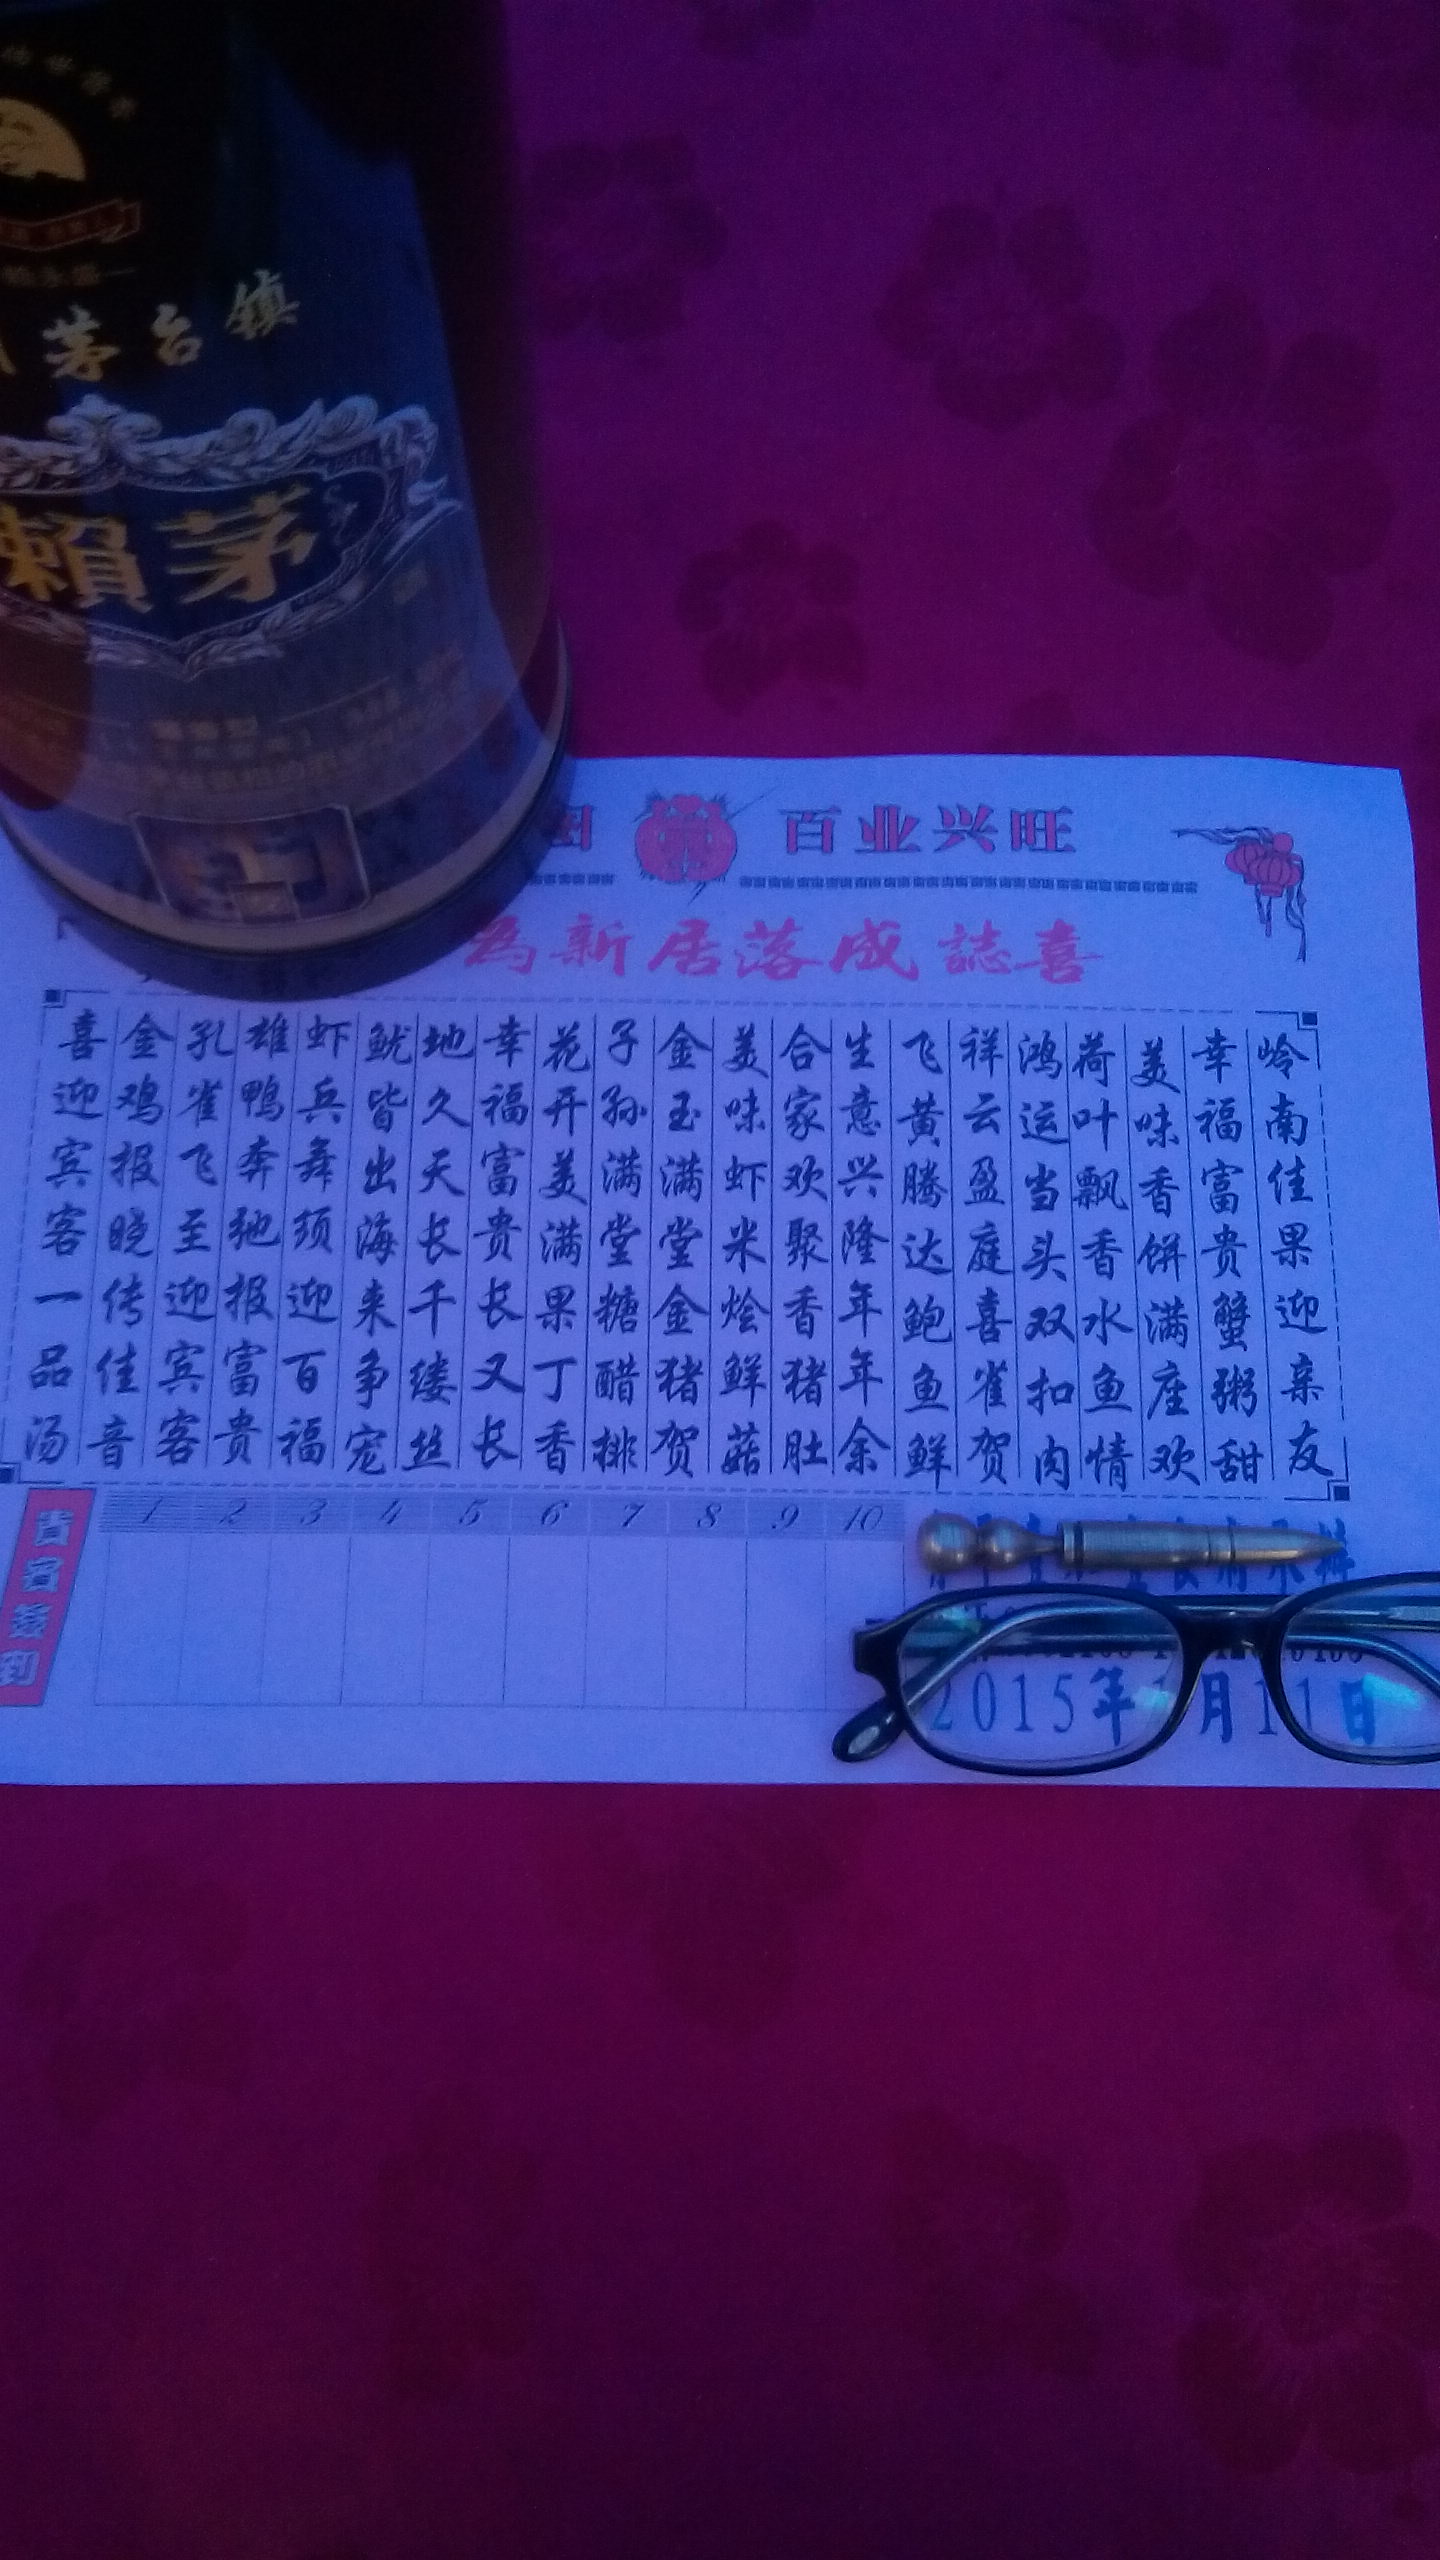 茅台镇
賴茅
百业兴旺
為新居落成誌喜
喜迎宾客一品汤
金鸡报晓传佳音
孔雀飞至迎宾客
雄鸭奔驰报富贵
虾兵舞须迎百福
鱿皆出海来争宠
地久天长千缕丝
幸福富贵长又长
花开美满果丁香
子孙满堂糖醋排
金玉满堂金猪贺
美味虾米烩鲜菇
合家欢聚香猪肚
生意兴隆年年余
飞黄腾达鲍鱼鲜
祥云盈庭喜雀贺
鸿运当头双扣肉
荷叶飘香水鱼情
美味香饼满座欢
幸福富贵蟹粥甜
岭南佳果迎亲友
貴賓簽到
1 2 3 4 5 6 7 8 9 10
2015年 月11日